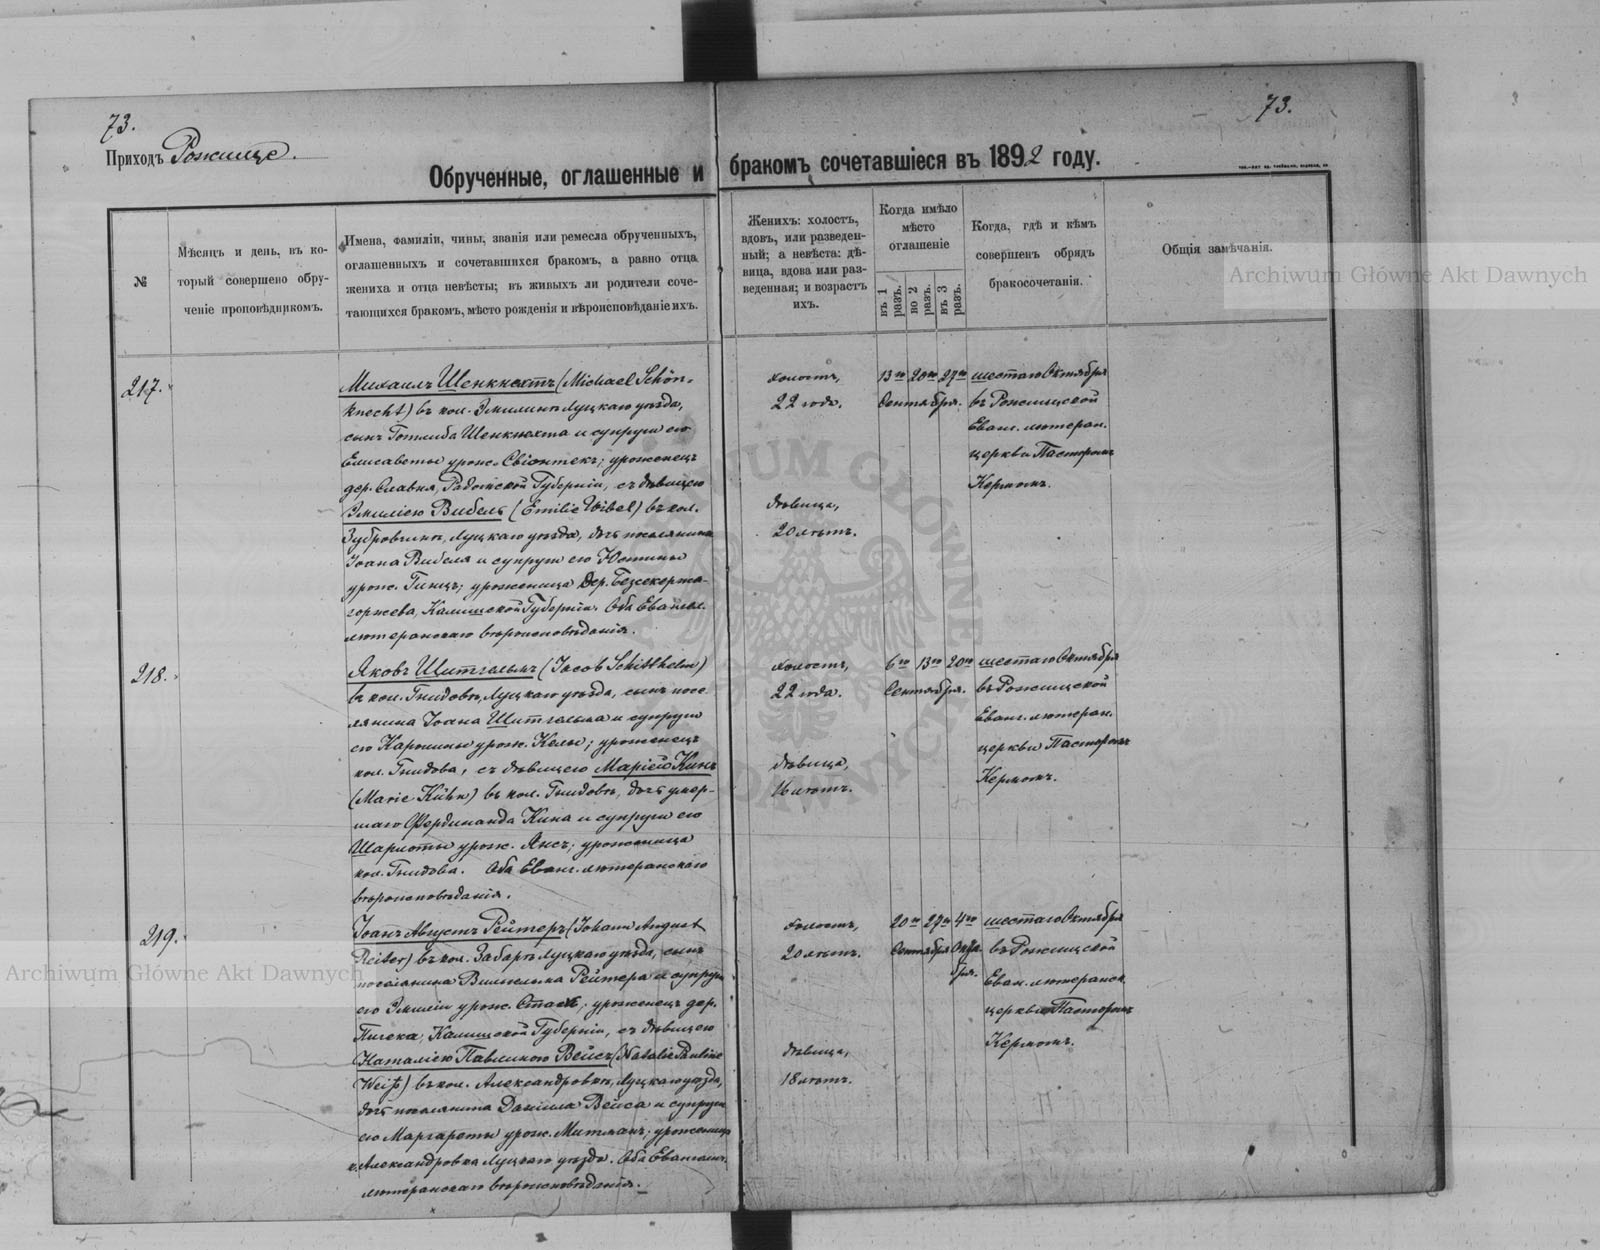 73.
73.
Приходъ Рожище.
Обрученные, оглашенные и бракомъ сочетавшіеся въ 1892 году.
№
Мѣсяцъ и день, въ ко-
торый совершено обру-
ченіе проповѣдникомъ.
Имена, фамиліи, чины, званія или ремесла обрученныхъ,
оглашенныхъ и сочетавшихся бракомъ, а равно отца
жениха и отца невѣсты; въ живыхъ ли родители соче-
тающихся бракомъ, мѣсто рожденія и вѣроисповѣданіе ихъ.
Женихъ: холостъ,
вдовъ, или разведен-
ный; а невѣста: дѣ-
вица, вдова или раз-
веденная; и возрастъ
ихъ.
Когда имѣло
мѣсто
оглашеніе
въ 1 разъ.
во 2 разъ.
въ 3 разъ.
Когда, гдѣ и кѣмъ
совершенъ обрядъ
бракосочетанія.
Общія замѣчанія.
217.
Михаилъ Шенкнехтъ (Michael Schön-
knecht) въ кол. Эмилинѣ Луцкаго уѣзда,
сынъ Готлиба Шенкнехта и супруги его
Елисаветы урож. Свіонтекъ; уроженецъ
дер. Славня, Радомской Губерніи, съ дѣвицею
Эмиліею Вибель (Emilie Wibel) въ кол.
Зубровщинѣ, Луцкаго уѣзда, дочь поселянина
Іоана Вибеля и супруги его Юстины
урож. Гинцъ; уроженица дер.
Калишской Губерніи. Оба Евангел.
лютеранскаго вѣроисповѣданія.
холостъ,
22 года.
дѣвица,
20 лѣтъ.
13го 20го 27го
Сентября.
шестаго Октября
въ Рожищской
Еванг. лютеран.
церкви Пасторомъ
Кермомъ.
218.
Яковъ Шитгельмъ (Jacob Schitthelm)
въ кол. Гнидовѣ, Луцкаго уѣзда, сынъ посе-
лянина Іоана Шитгельма и супруги
его Каролины урож. Кельм; уроженецъ
кол. Гнидова, съ дѣвицею Маріею Кинъ
(Marie Kühn) въ кол. Гнидовѣ, дочь умер-
шаго Фердинанда Кина и супруги его
Шарлоты урож. Янсъ; уроженица
кол. Гнидова. Оба Еванг. лютеранскаго
вѣроисповѣданія.
холостъ,
22 года.
дѣвица,
16 лѣтъ.
6го 13го 20го
Сентября.
шестаго Октября
въ Рожищской
Еванг. лютеран.
церкви Пасторомъ
Кермомъ.
219.
Іоанъ Августъ Рейтеръ (Johann August
Reiter) въ кол. Забарѣ Луцкаго уѣзда, сынъ
поселянина Вильгельма Рейтера и супруги
его Эмиліи урож. уроженецъ дер.
Калишской Губерніи, съ дѣвицею
Наталіею Павлиною Вейсъ (Natalie Pauline
Weiß) въ кол. Александровкѣ, Луцкаго уѣзда,
дочь поселянина Даніила Вейса и супруги
его Маргареты урож. Митманъ; уроженица
к. Александровка Луцкаго уѣзда. Оба Евангел.
лютеранскаго вѣроисповѣданія.
холостъ,
20 лѣтъ.
дѣвица,
18 лѣтъ.
20го 27го 4го
Сентября Октя-
бря.
шестаго Октября
въ Рожищской
Еван. лютеранск.
церкви Пасторомъ
Кермомъ.
Archiwum Główne Akt Dawnych
Archiwum Główne Akt Dawnych